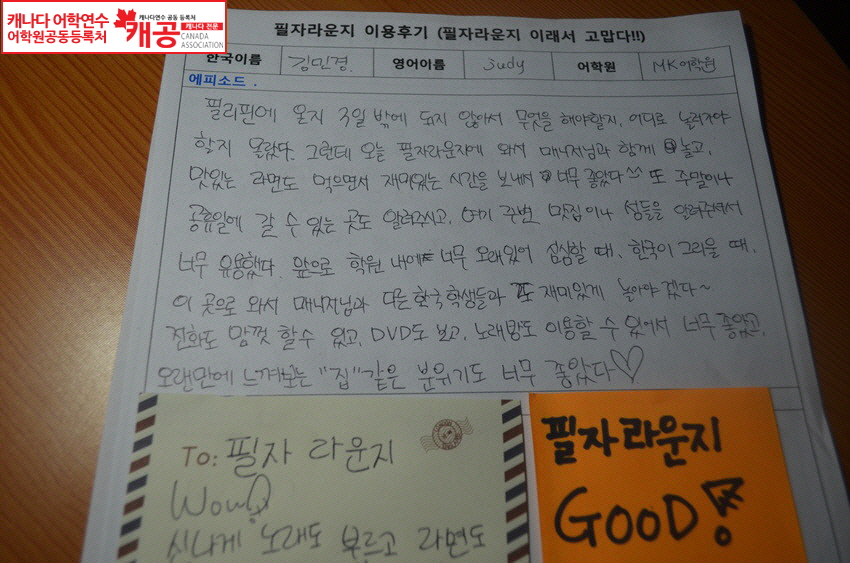 캐나다 어학연수
어학원공동등록처
캐나다연수 공동 등록처
캐공 캐나다 전문
CANADA
ASSOCIATION
필자라운지 이용후기 (필자라운지 이래서 고맙다!!)
한국이름 김민경. 영어이름 Judy 어학원 MK어학원
에피소드.
필리핀에 온지 3일 밖에 되지 않아서 무엇을 해야할지, 어디로 놀러가야
할지 몰랐다. 그런데 오늘 필자라운지에 와서 매니저님과 함께 놀고,
맛있는 라면도 먹으면서 재미있는 시간을 보내서 너무 좋았다^^ 또 주말이나
공휴일에 갈 수 있는 곳도 알려주시고, 여기 주변 맛집이나 성들을 알려주셔서
너무 유용했다. 앞으로 학원 내에 너무 오래있어 심심할 때, 한국이 그리울 때,
이 곳으로 와서 매니저님과 다른 한국학생들과 또 재미있게 놀아야겠다~
전화도 맘껏 할 수 있고, DVD도 보고, 노래방도 이용할 수 있어서 너무 좋았고,
오랜만에 느껴보는 "집"같은 분위기도 너무 좋았다♡
To: 필자 라운지
Wow!
신나게 노래도 부르고 라면도
필자라운지
GOOD!